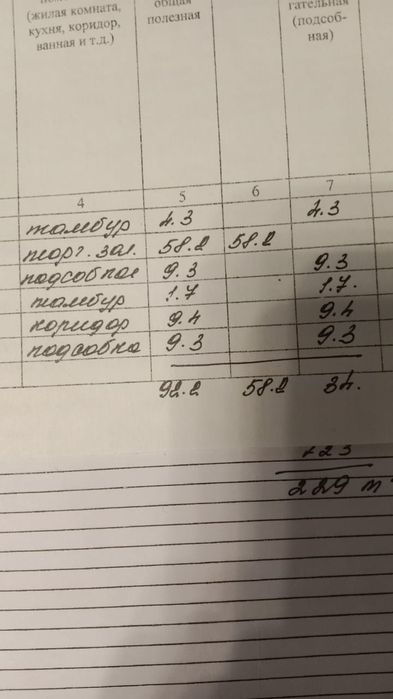 (жилая комната,
кухня, коридор,
ванная и т.д.)
общая
полезная
гательная
(подсоб-
ная)
4 5 6 7
тамбур 4.3 4.3
торг. зал. 58.2 58.2
подсобное 9.3 9.3
тамбур 1.7 1.7.
коридор 9.4 9.4
подсобка 9.3 9.3
92.2 58.2 34.
229 м